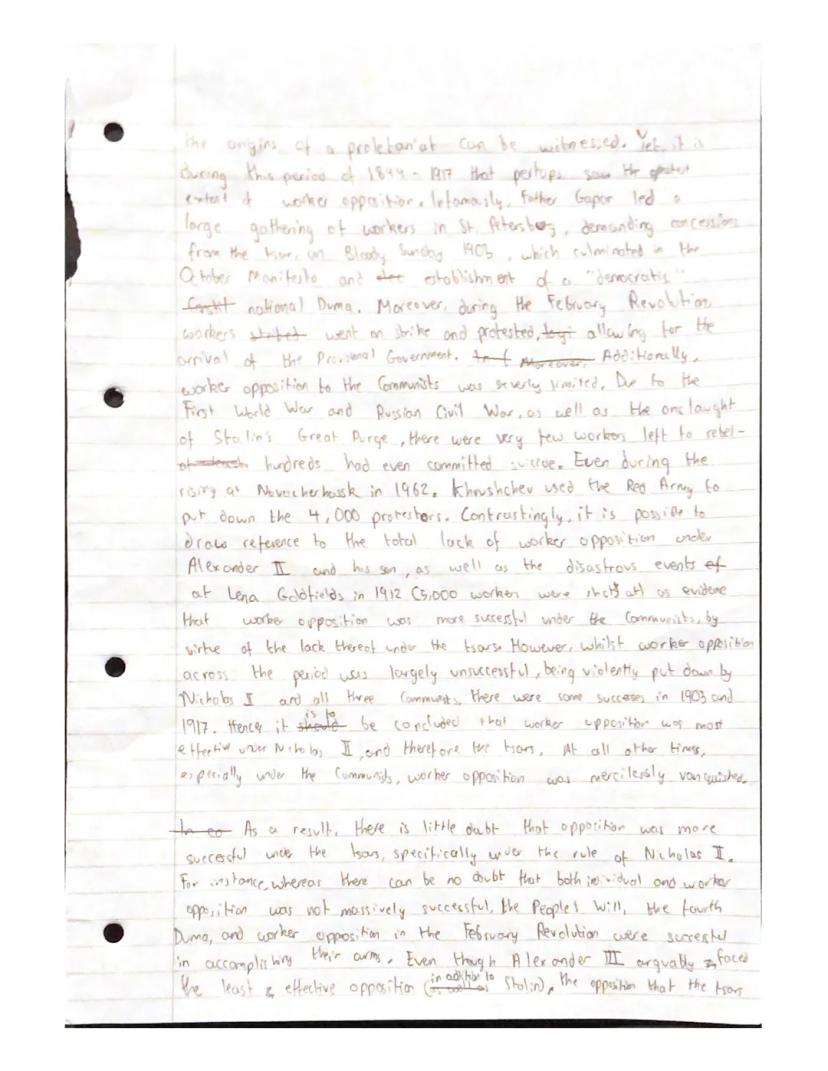 the origins of a proletariat can be witnessed. Yet, it is
during this period of 1894 - 1917 that perhaps saw the greatest
extent of worker opposition. Infamously, Father Gapon led a
large gathering of workers in St. Petersburg, demanding concessions
from the tsar, on Bloody Sunday 1905, which culminated in the
October Manifesto and establishment of a "democratic"
national Duma. Moreover, during the February Revolution
workers went on strike and protested, allowing for the
arrival of the Provisional Government. Additionally,
worker opposition to the Communists was severly limited. Due to the
First World War and Russian Civil War, as well as the onslaught
of Stalin's Great Purge, there were very few workers left to rebel -
hundreds had even committed suicide. Even during the
rising at Novocherkassk in 1962, Khrushchev used the Red Army to
put down the 4,000 protestors. Contrastingly, it is possible to
draw reference to the total lack of worker opposition under
Alexander II and his son, as well as the disastrous events
at Lena Goldfields in 1912 (5,000 workers were shot at) as evidence
that worker opposition was more succesful under the Communists, by
virtue of the lack thereof under the tsars. However, whilst worker opposition
across the period was largely unsuccessful, being violently put down by
Nicholas II and all three Communists, there were some successes in 1905 and
1917. Hence it is to be concluded that worker opposition was most
effective under Nicholas II, and therefore the tsars. At all other times,
especially under the Communists, worker opposition was mercilessly vanquished.
As a result, there is little doubt that opposition was more
successful under the tsars, specifically under the rule of Nicholas II.
For instance, whereas there can be no doubt that both individual and worker
opposition was not massively successful, the People's Will, the fourth
Duma, and worker opposition in the February Revolution were succesful
in accomplishing their aims. Even though Alexander III arguably faced
the least effective opposition (in addition to Stalin), the opposition that the tsars